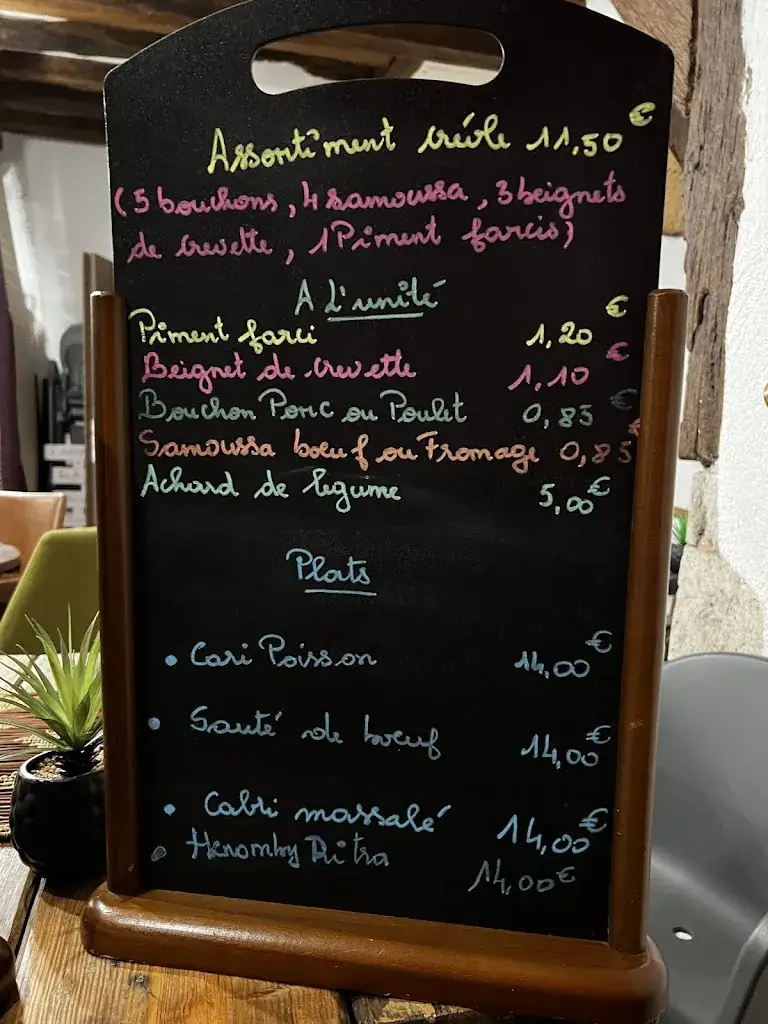 Assortiment créole 11,50€
(5 bouchons, 4 samoussa, 3 beignets
de crevette, 1 Piment farcis)
A L'unité
Piment farci 1,20€
Beignet de crevette 1,10€
Bouchon Porc ou Poulet 0,85€
Samoussa boeuf ou Fromage 0,85€
Achard de legume 5,00€
Plats
• Cari Poisson 14,00€
• Sauté de boeuf 14,00€
• Cabri massalé 14,00€
• Henomby Ritra 14,00€